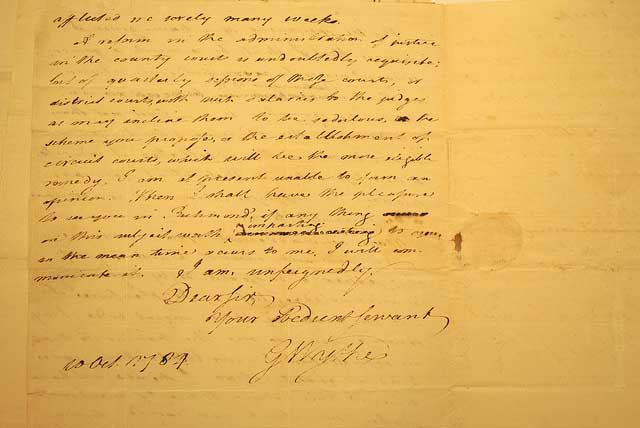 afflicted me sorely many weeks.
A reform in the administration of justice
in the county court is undoubtedly requisite;
but if quarterly sessions of those courts, or
district courts, with such salaries to the judges
as may incline them to be sedulous, the
scheme you propose, or the establishment of
circuit courts, which will be the more eligible
remedy, I am at present unable to form an
opinion. When I shall have the pleasure
to see you in Richmond, if any thing
on this subject worth imparting to you,
in the mean time occurs to me, I will com-
municate it. I am, unfeignedly,
Dear Sir,
Your obedient servant,
G Wythe
10 Oct. 1784.